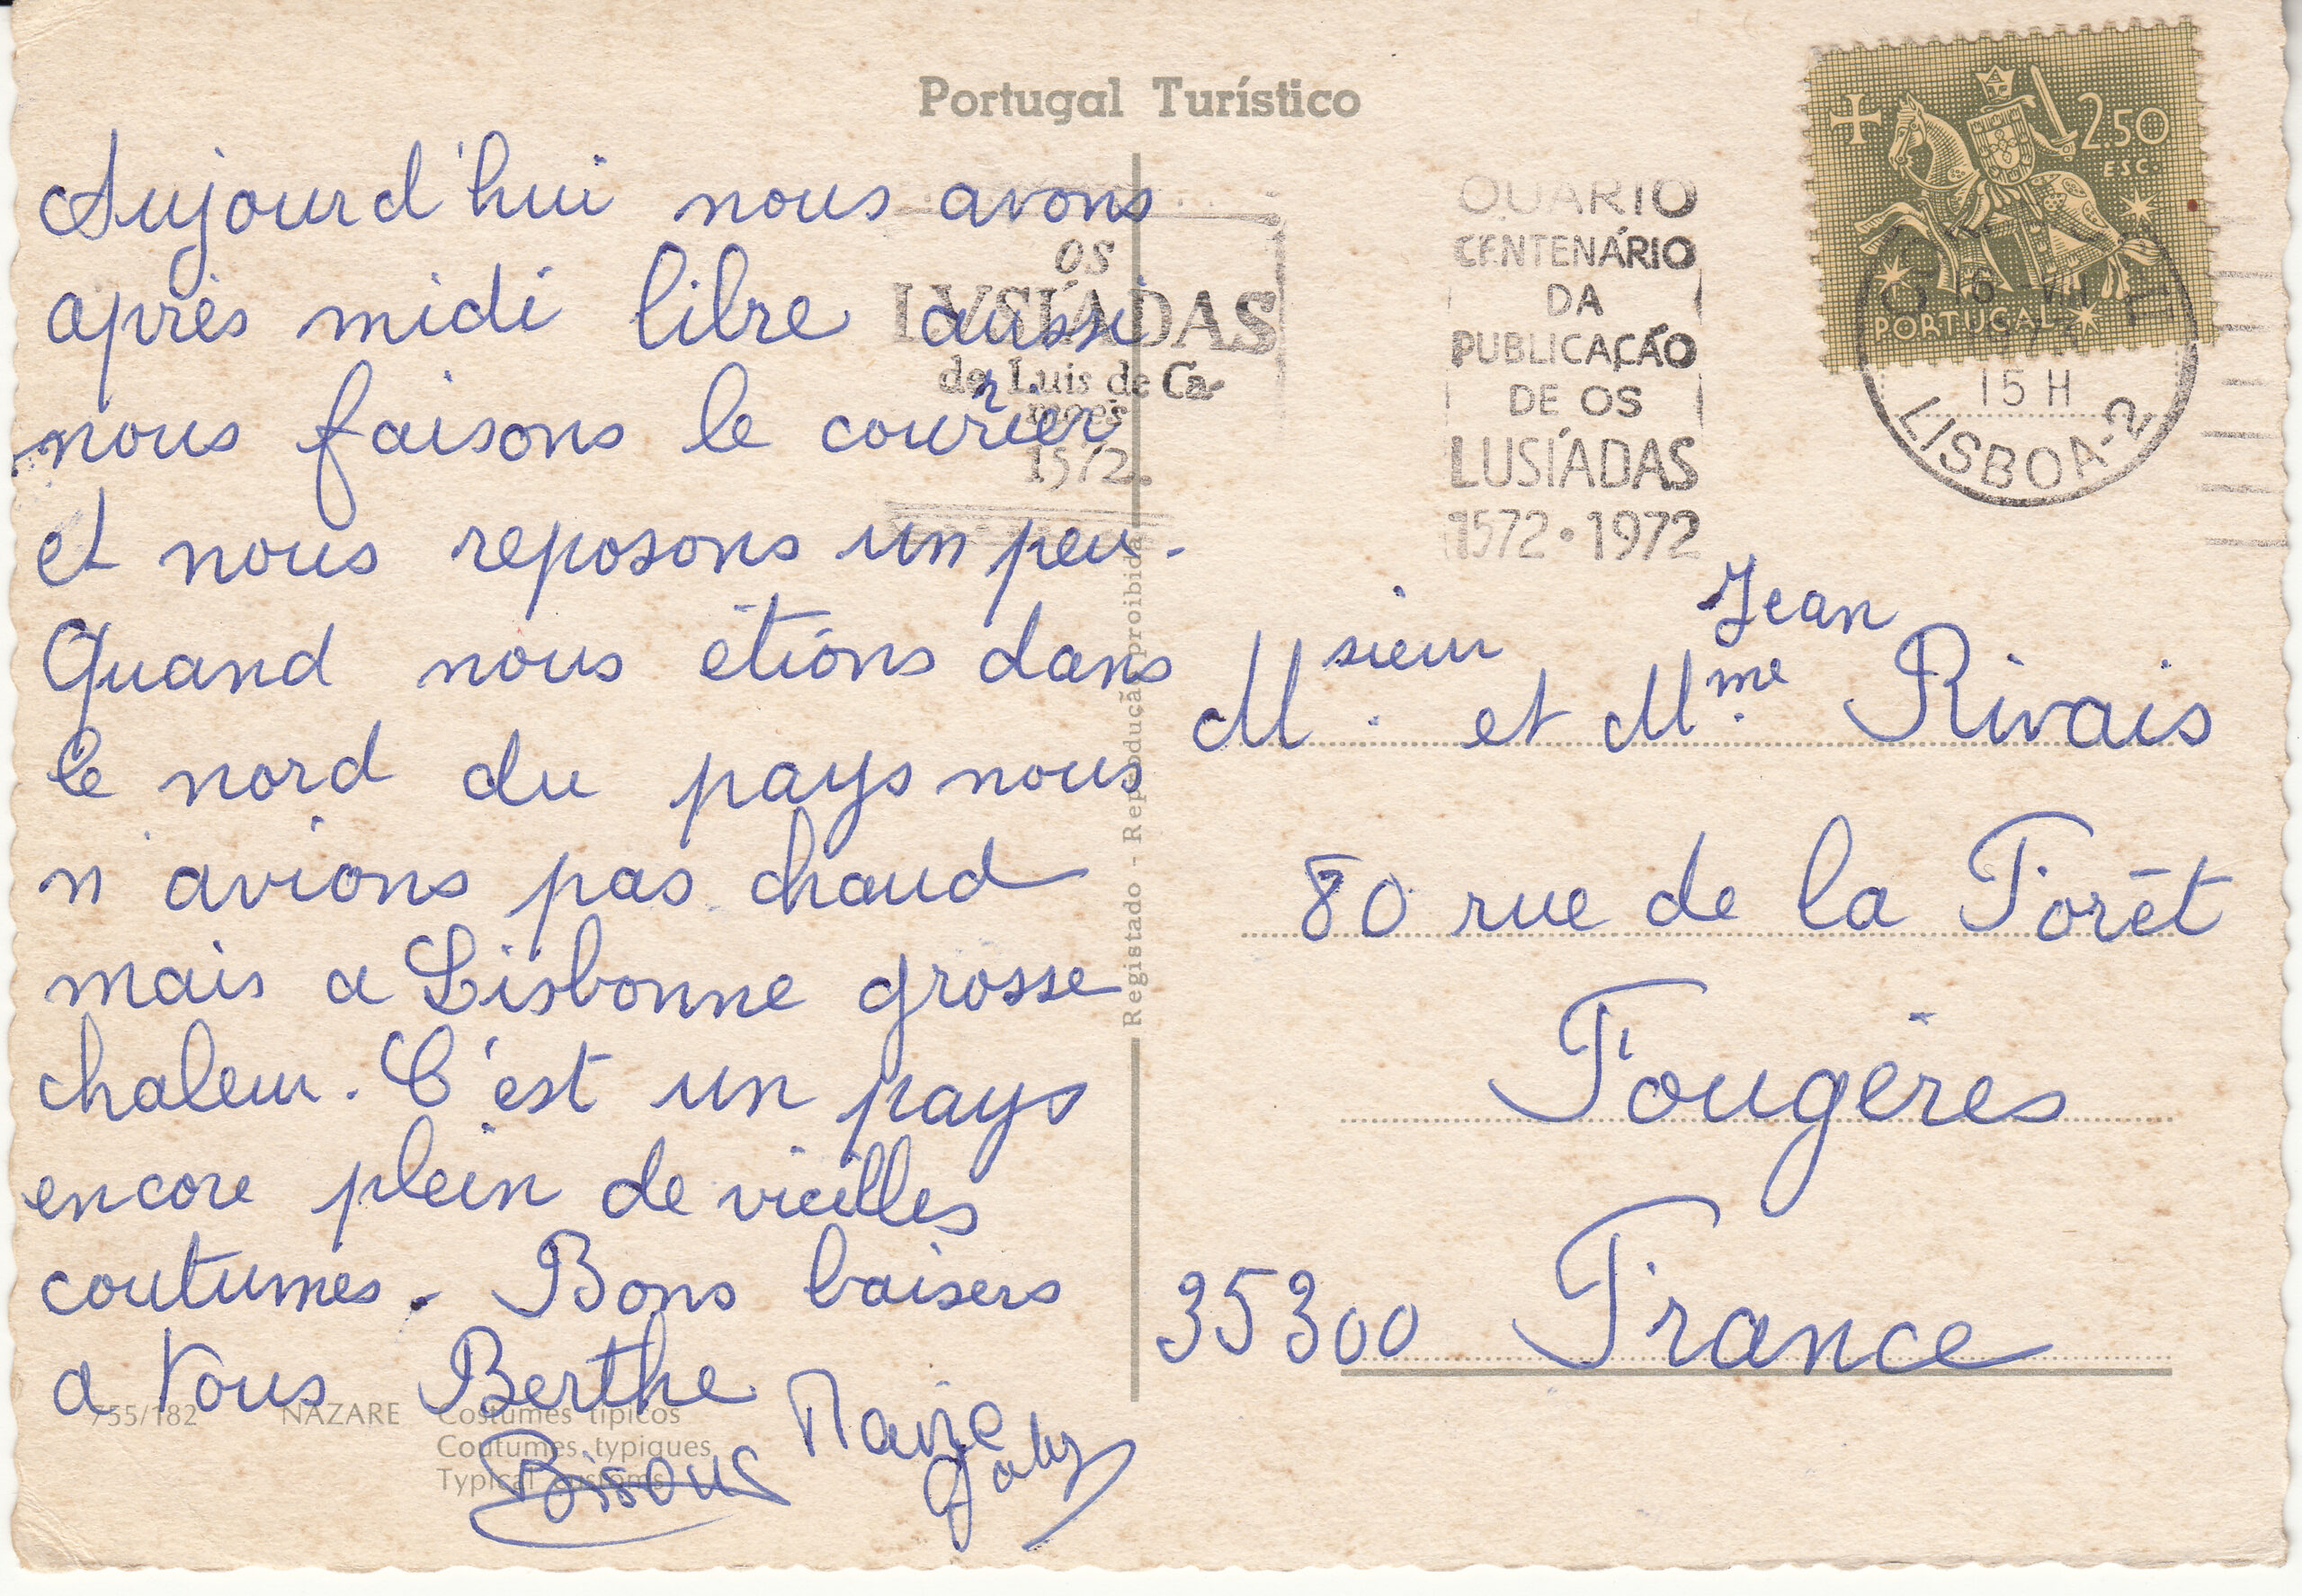 Portugal Turístico
Aujourd'hui nous avons
après midi libre aussi
nous faisons le courrier
et nous reposons un peu.
Quand nous étions dans
le nord du pays nous
n'avions pas chaud
mais a Lisbonne grosse
chaleur. C'est un pays
encore plein de vieilles
coutumes. Bons baisers
a tous Berthe
Marie
Gaby
Bisous
755/182 NAZARE Costumes típicos
Coutumes typiques
Typical customs
Registado - Reprodução proibida
OS
LVSÍADAS
de Luis de Ca-
moes
1572.
QUARTO
CENTENÁRIO
DA
PUBLICAÇÃO
DE OS
LUSÍADAS
1572 • 1972
2.50
ESC.
PORTUGAL
15 H
LISBOA-2
Jean
Msieur et Mme Rivais
80 rue de la Forêt
Fougères
35300 France